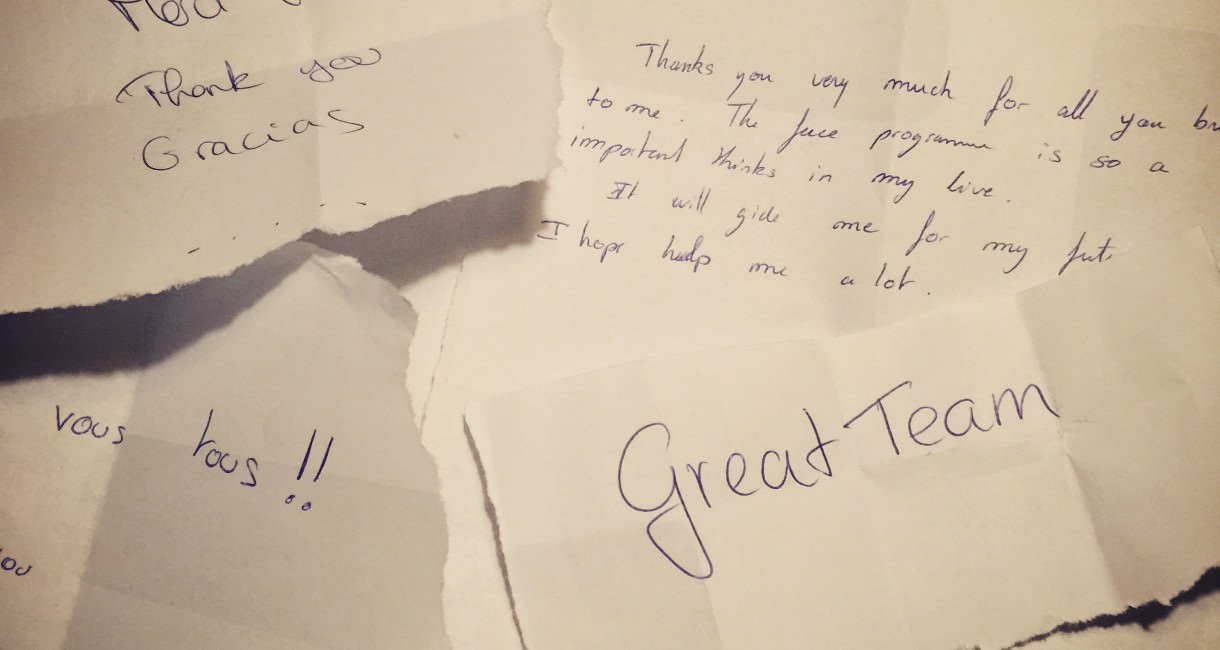 Thank you
Gracias
Thanks you very much for all you
to me. The face programme is so a
important thinks in my live.
It will gide me for my
I hope help me a lot.
vous tous !!
Great Team